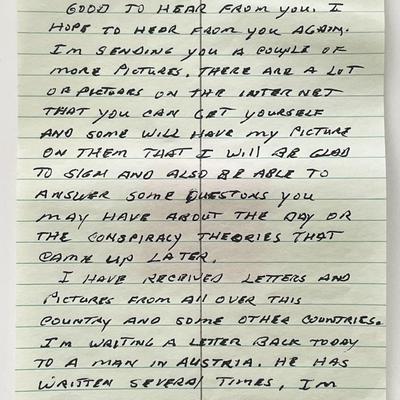 GOOD TO HEAR FROM YOU. I
HOPE TO HEAR FROM YOU AGAIN.
I'M SENDING YOU A COUPLE OF
MORE PICTURES. THERE ARE A LOT
OF PICTUORS ON THE INTERNET
THAT YOU CAN GET YOURSELF
AND SOME WILL HAVE MY PICTURE
ON THEM THAT I WILL BE GLAD
TO SIGN AND ALSO BE ABLE TO
ANSWER SOME QUESTONS YOU
MAY HAVE ABOUT THE DAY OR
THE CONSPIRACY THEORIES THAT
CAME UP LATER.
I HAVE RECEIVED LETTERS AND
PICTURES FROM All OVER THIS
COUNTRY AND SOME OTHER COUNTRIES.
I'M WRITING A LETTER BACK TODAY
TO A MAN IN AUSTRIA. HE HAS
WRITTEN SEVERAL TIMES. I'M